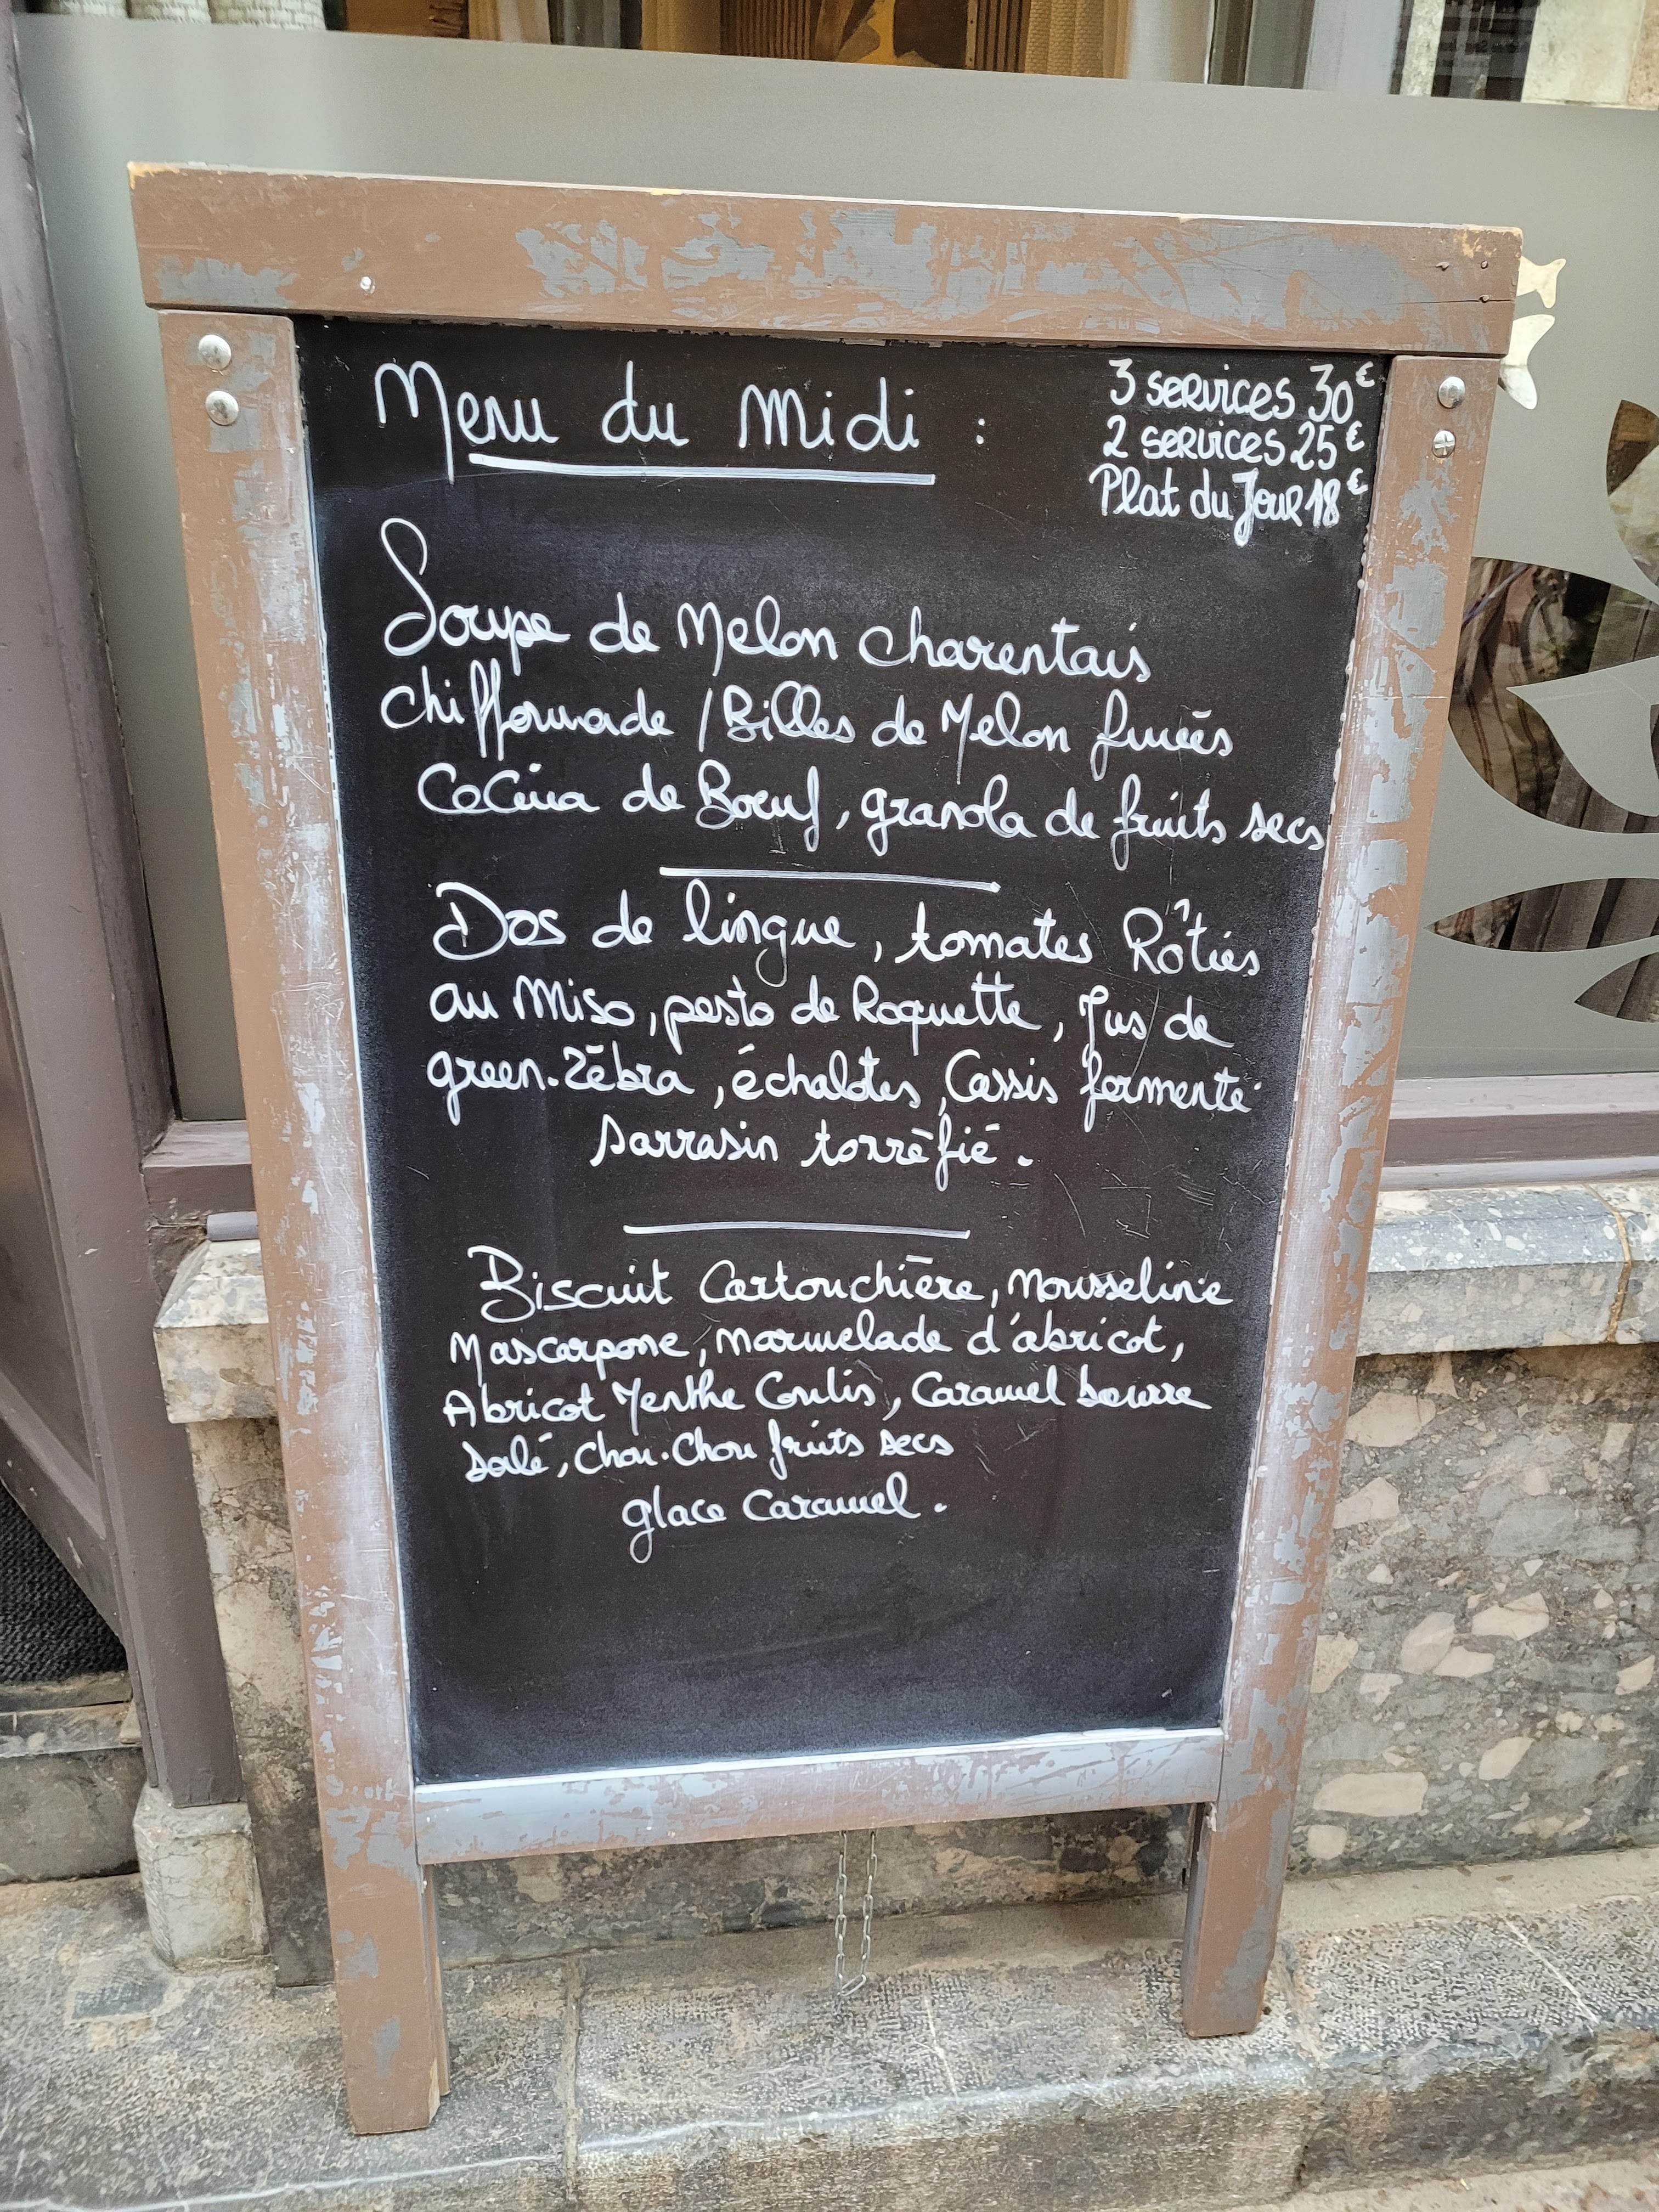 Menu du Midi :
3 services 30€
2 services 25€
Plat du Jour 18€
Soupe de Melon charentais
chiffonnade / Billes de Melon fumés
CeCina de Boeuf, granola de fruits secs
Dos de lingue, tomates Rôties
au Miso, pesto de Roquette, Jus de
green.Zébra, échalotes, Cassis fermenté
sarrasin torréfié.
Biscuit Cartouchière, Mousseline
Mascarpone, Marmelade d'abricot,
Abricot Menthe Coulis, Caramel beurre
salé, Chou.Chou fruits secs
glace Caramel.